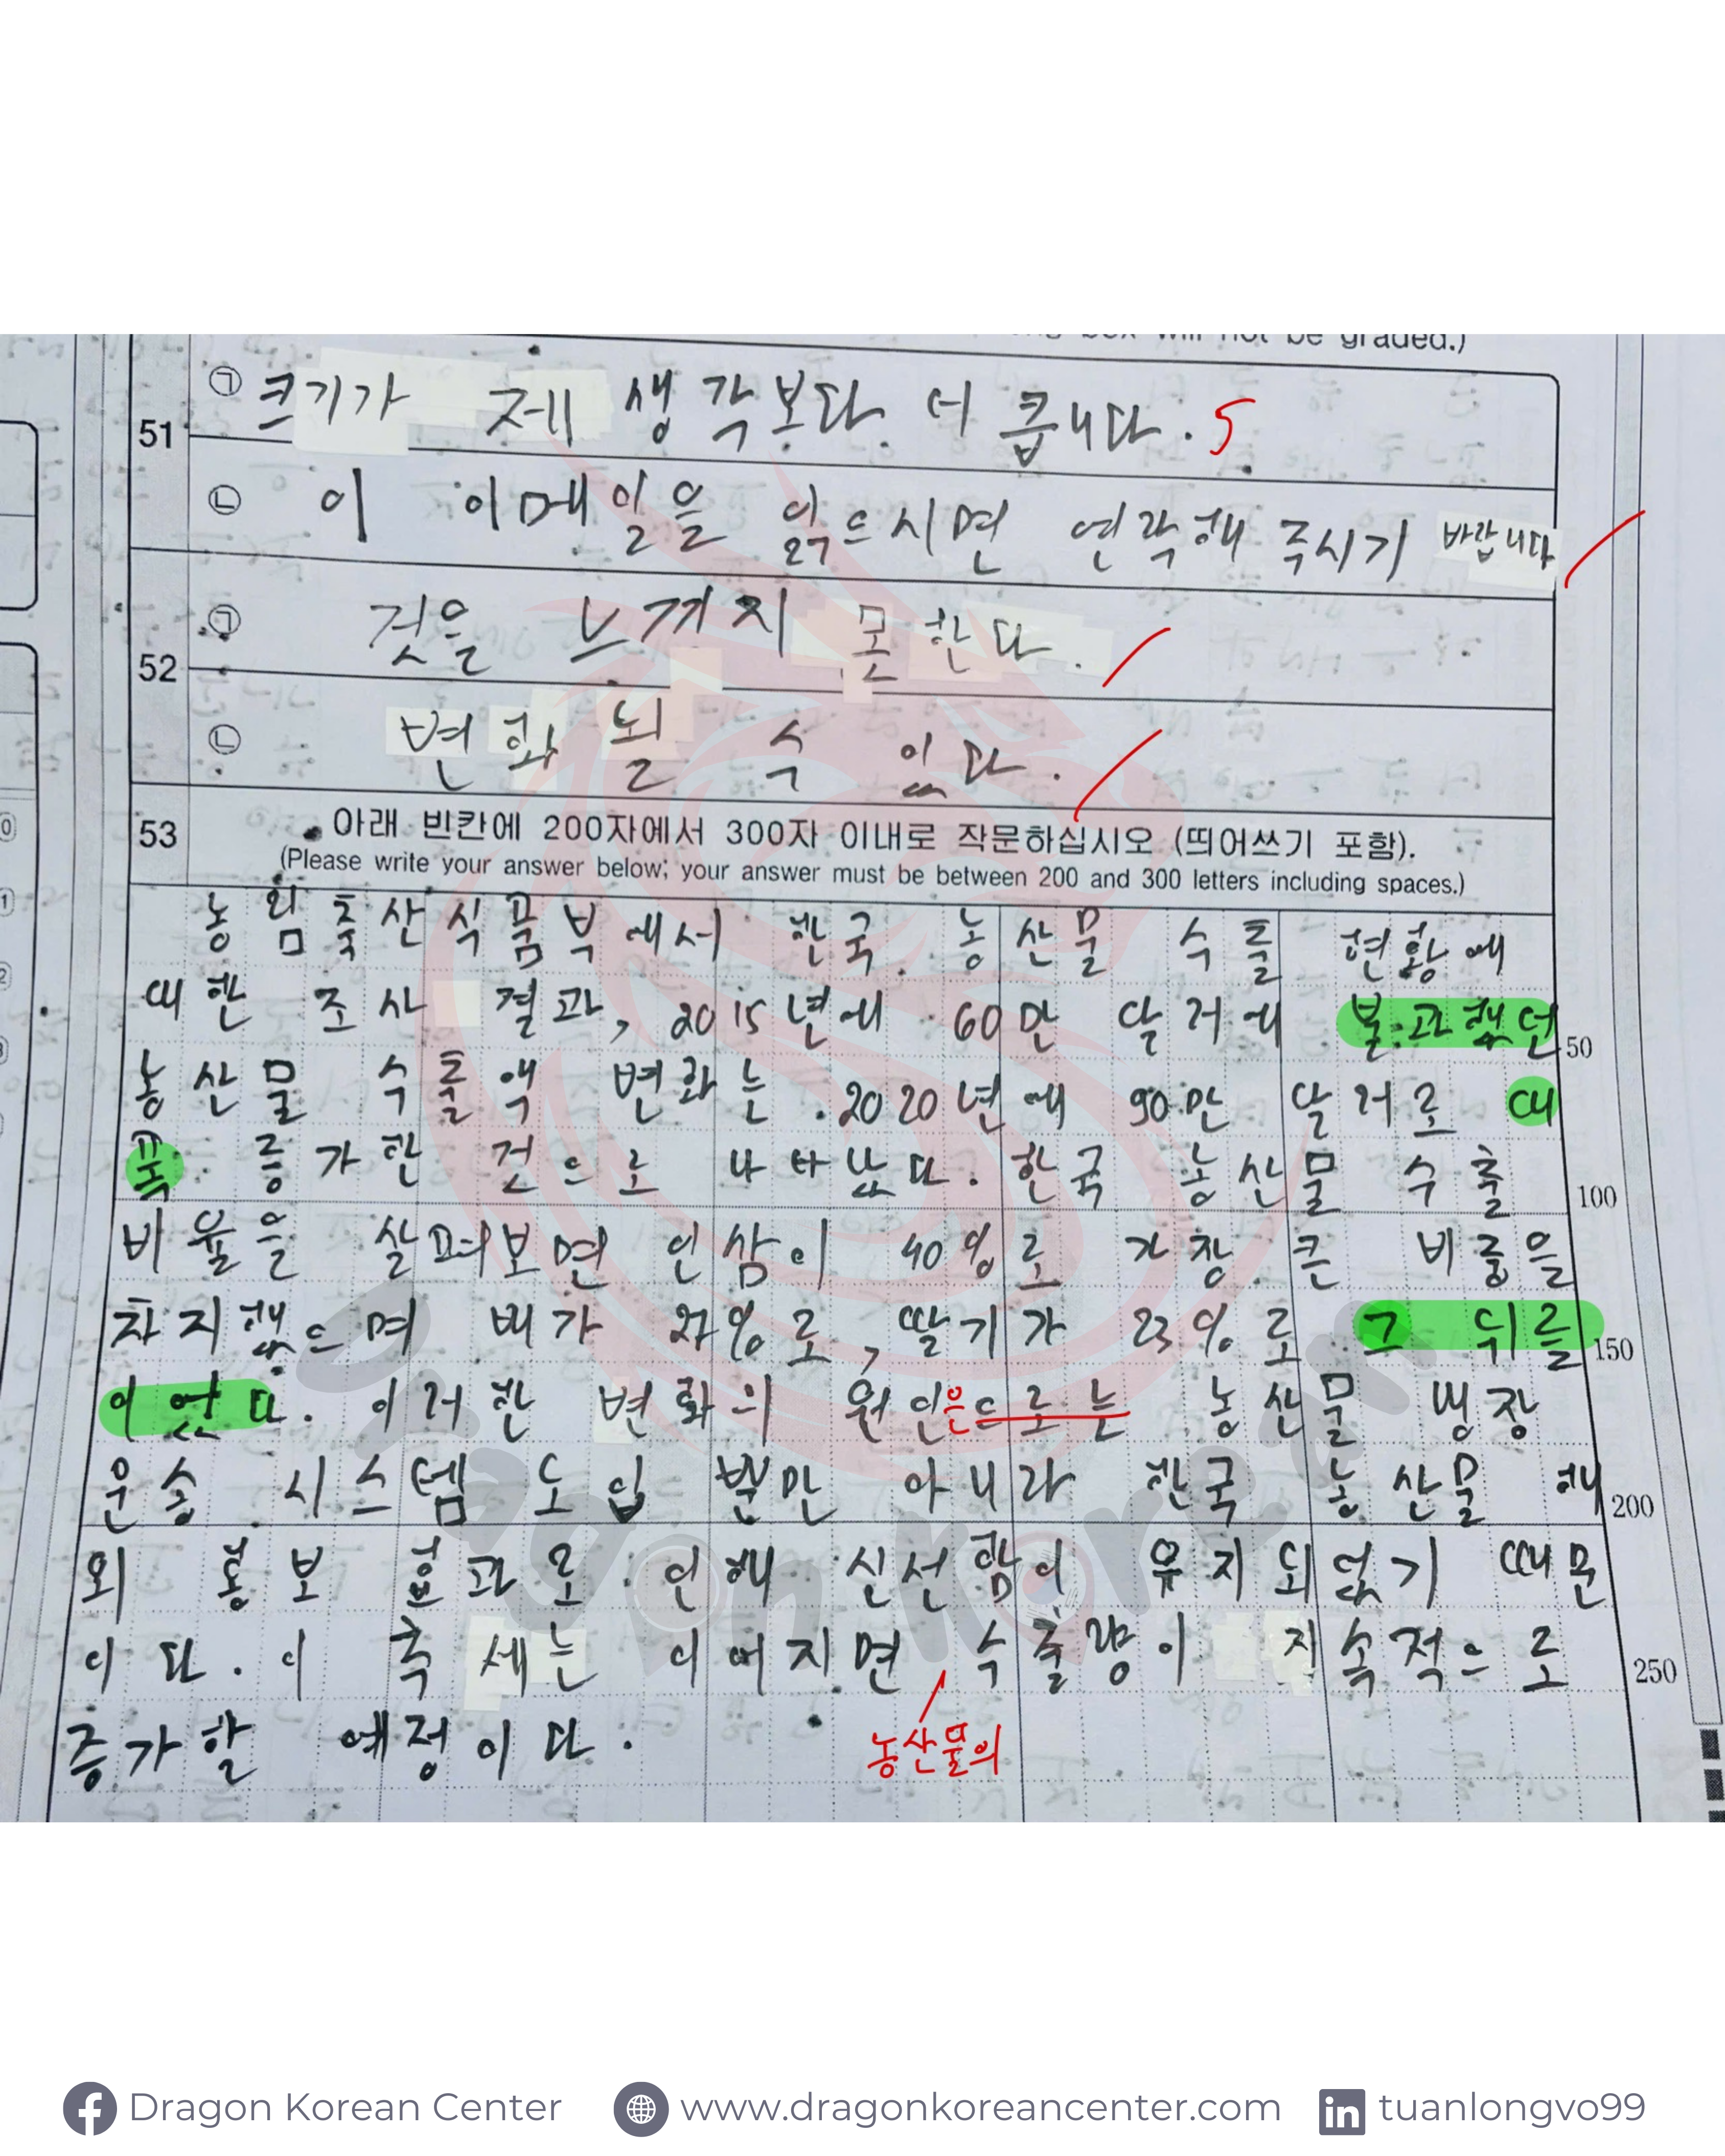 51
㉠ 크기가 제 생각보다 더 큽니다. 5
㉡ 이 이메일을 읽으시면 연락해 주시기 바랍니다
52
㉠ 것을 느끼지 못한다.
㉡ 변화될 수 있다.
53 아래 빈칸에 200자에서 300자 이내로 작문하십시오 (띄어쓰기 포함).
(Please write your answer below; your answer must be between 200 and 300 letters including spaces.)
농림축산식품부에서 한국 농산물 수출 현황에
대한 조사 결과, 2015년에 60만 달러에 불과했던 50
농산물 수출액 변화는 2020년에 90만 달러로 대
폭 증가한 것으로 나타났다. 한국 농산물 수출 100
비율을 살펴보면 인삼이 40%로 가장 큰 비중을
차지했으며 배가 27%로, 딸기가 23%로 그 뒤를 150
이었다. 이러한 변화의 원인은으로는 농산물 냉장
운송 시스템 도입 뿐만 아니라 한국 농산물 해 200
외 홍보 효과로 인해 신선함이 유지되었기 때문
이다. 이 추세는 이어지면 수출량이 지속적으로 250
농산물의
증가할 예정이다.
Dragon Korean
Dragon Korean Center www.dragonkoreancenter.com in tuanlongvo99